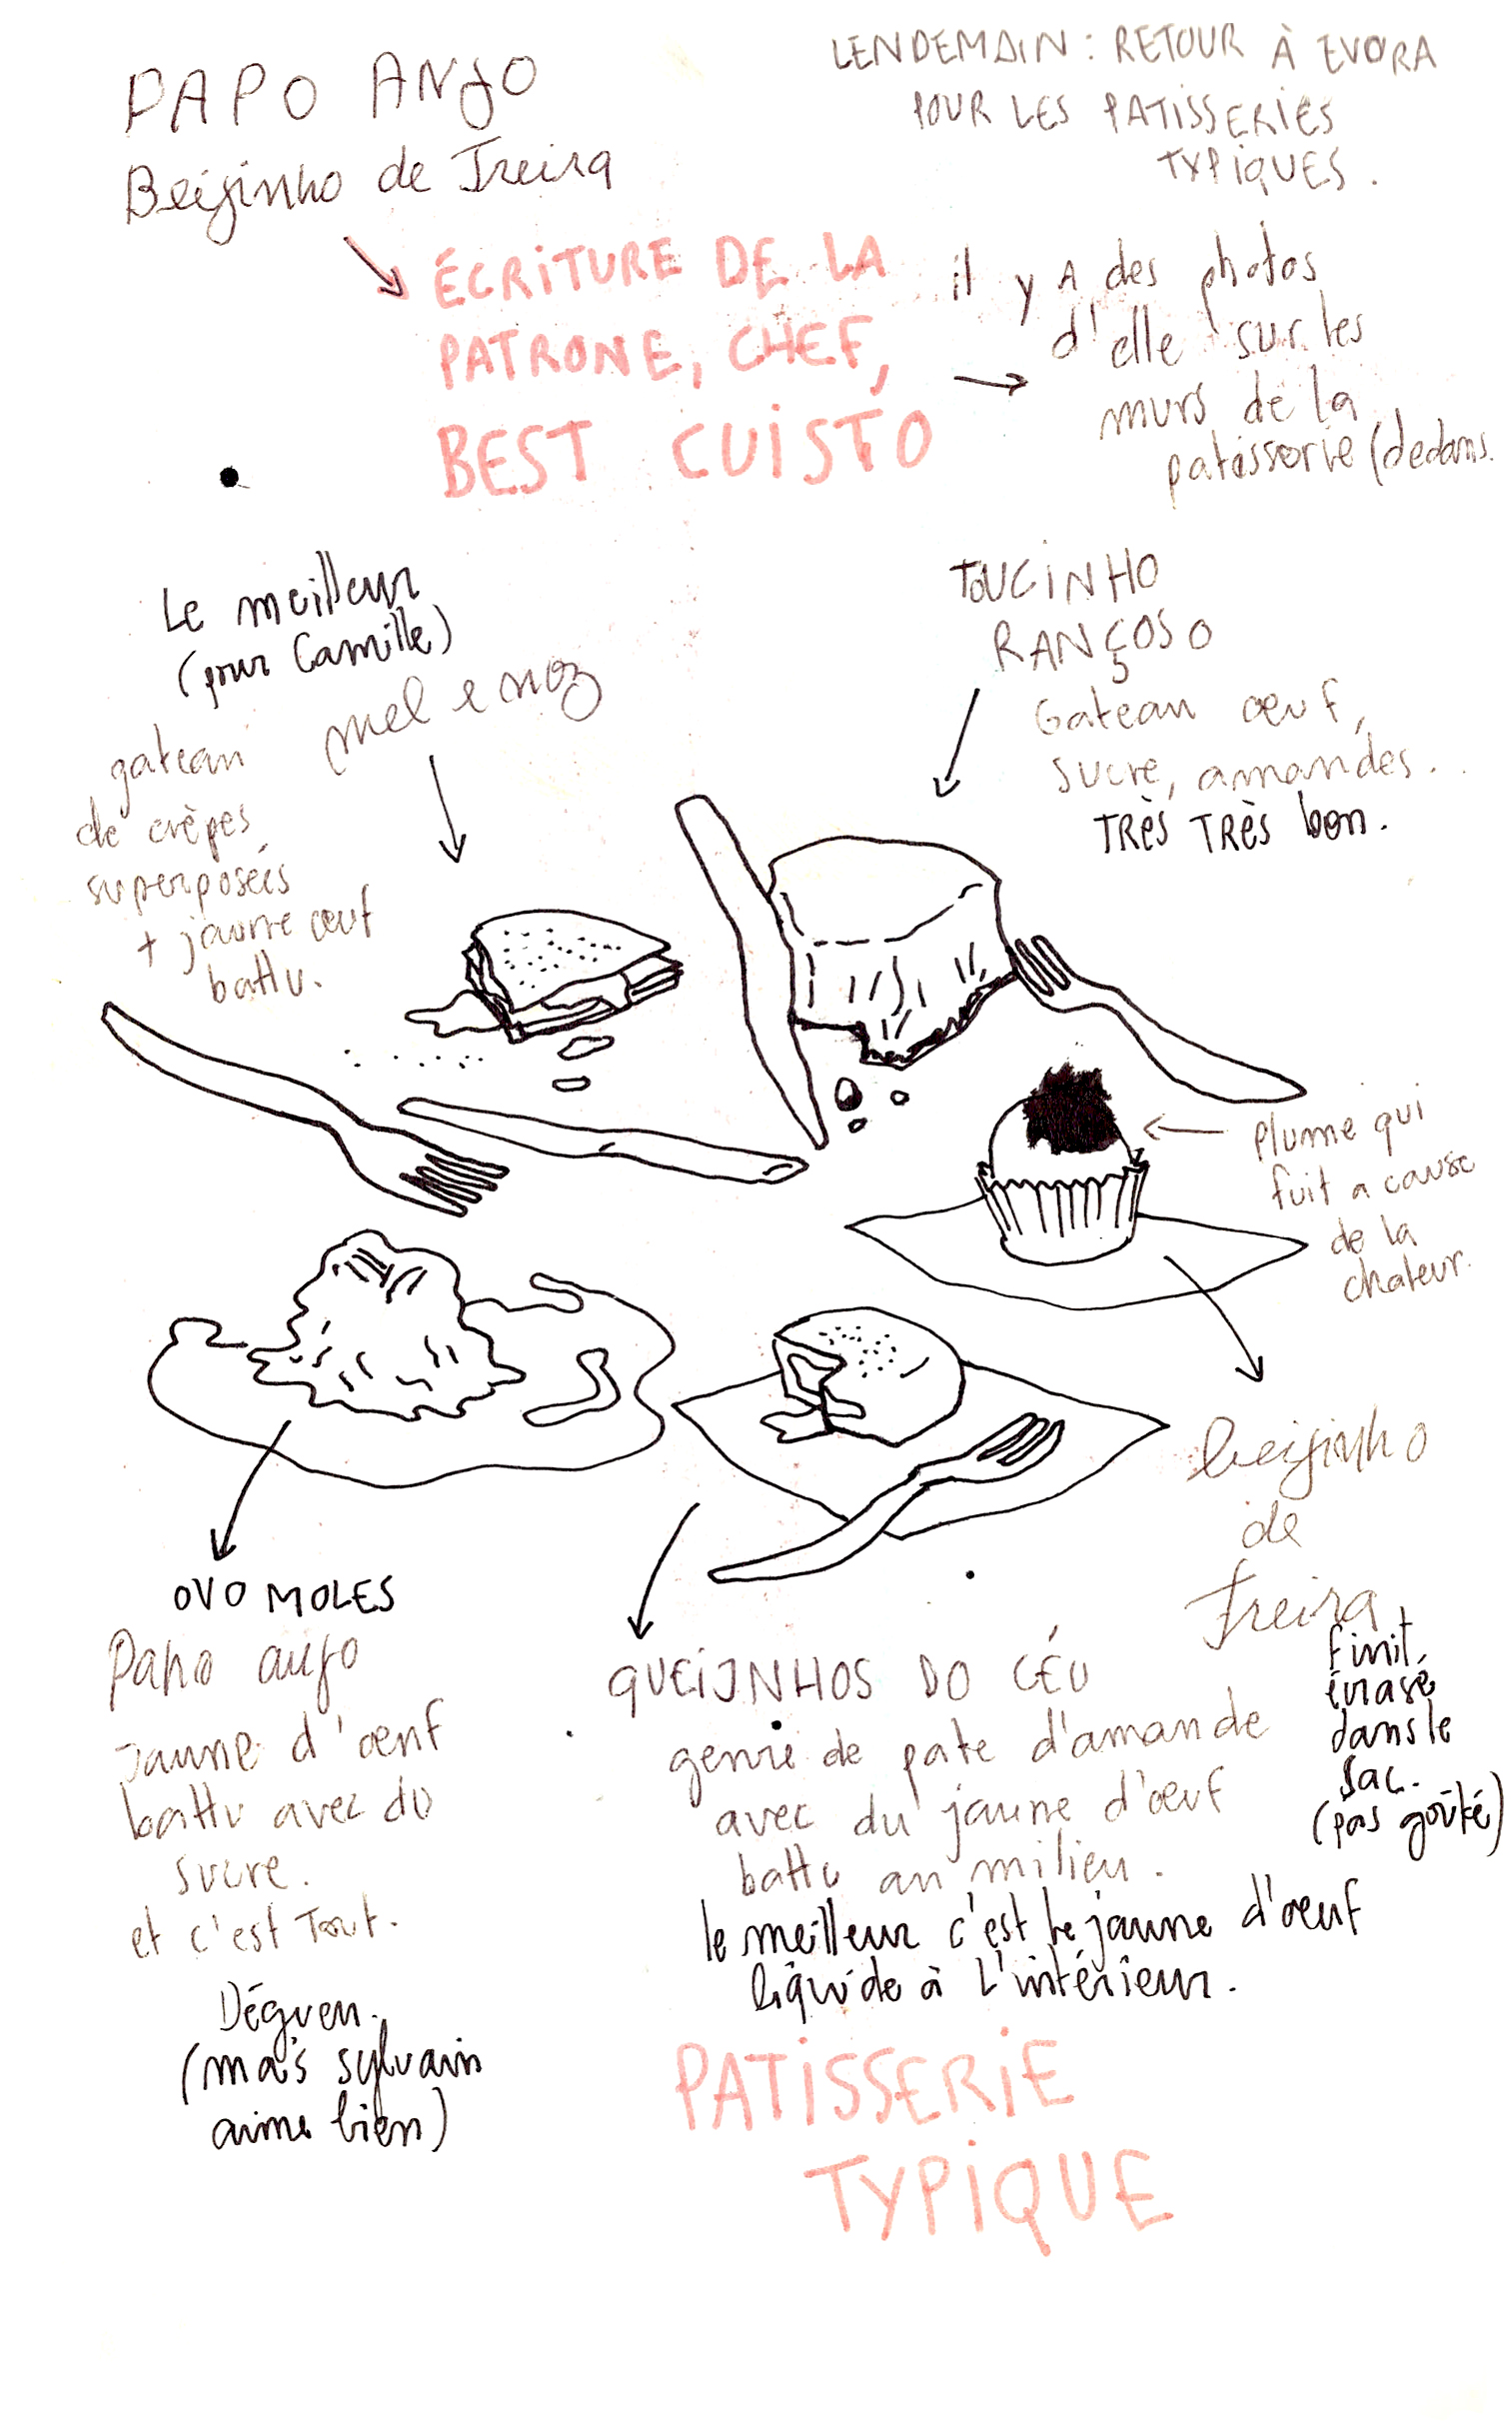 PAPO ANJO
Beijinho de Freira
LENDEMAIN : RETOUR À EVORA
POUR LES PATISSERIES
TYPIQUES.
ÉCRITURE DE LA
PATRONE, CHEF,
BEST CUISTO
il y A des photos
d'elle sur les
murs de la
patisserie (dedans.
Le meilleur
(pour Camille)
mel e noz
gateau
de crêpes
superposées
+ jaune œuf
battu.
TOUCINHO
RANÇOSO
Gateau œuf,
sucre, amandes..
TRÈS TRÈS bon.
Plume qui
fuit a cause
de la
chaleur.
beijinho
de
freira
finit
écrasé
dans le
sac.
(pas goûté)
OVO MOLES
Papo anjo
Jaune d'œuf
battu avec du
sucre.
et c'est Tout.
Dégueu.
(mais sylvain
aime bien)
QUEIJNHOS DO CÉU
genre de pate d'amande
avec du jaune d'œuf
battu au milieu.
le meilleur c'est le jaune d'œuf
liquide à L'intérieur.
PATISSERIE
TYPIQUE